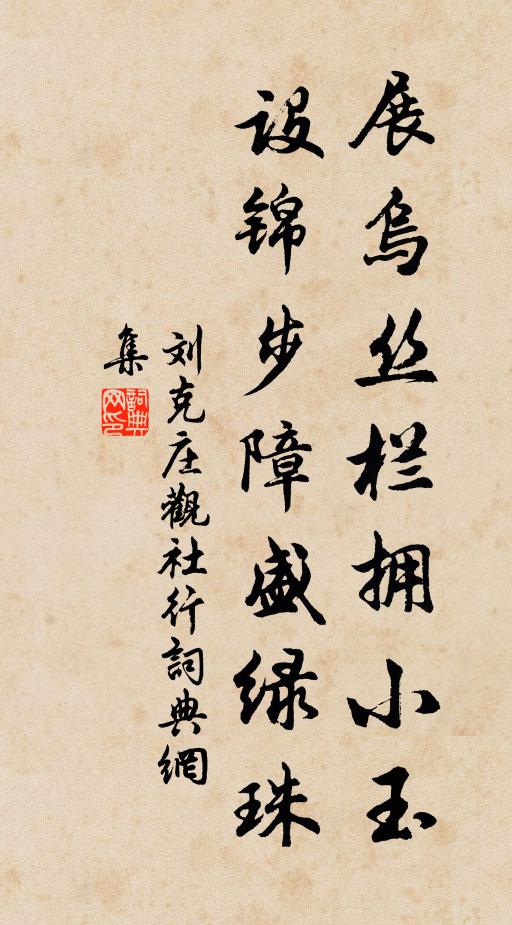 展乌丝栏拥小玉
设锦步障盛绿珠
刘克庄觀社行詞典網
集
詞典网印